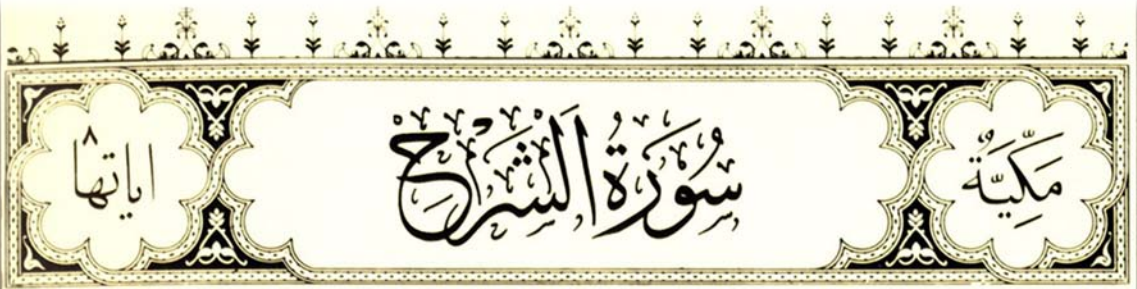 مَكِّيَّةٌ
سُورَةُ الشَّرْحِ
اياتها ٨